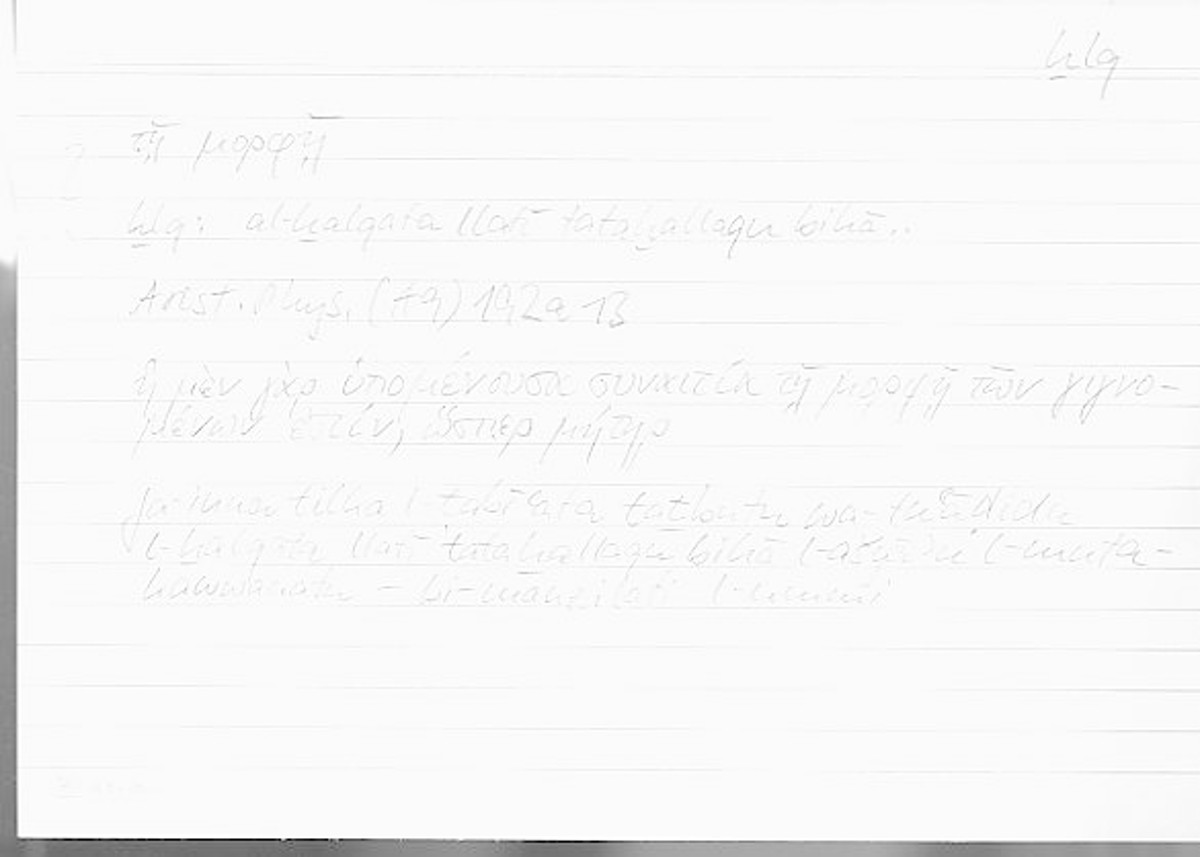 ḫlq
τῇ μορφῇ
ḫlq: al-ḫalqata llatī tataḫallaqu bihā..
Arist. Phys. (A9) 192a 13
ἡ μὲν γὰρ ὑπομένουσα συναιτία τῇ μορφῇ τῶν γιγνο-
μένων ἐστίν, ὥσπερ μήτηρ
fa-inna tilka l-ṭabīʿata taṯbutu wa-
l-ḫalqata llatī tataḫallaqu bihā l-ašyāʾu l-muta-
kawwanatu - bi-manzilati l-ummi